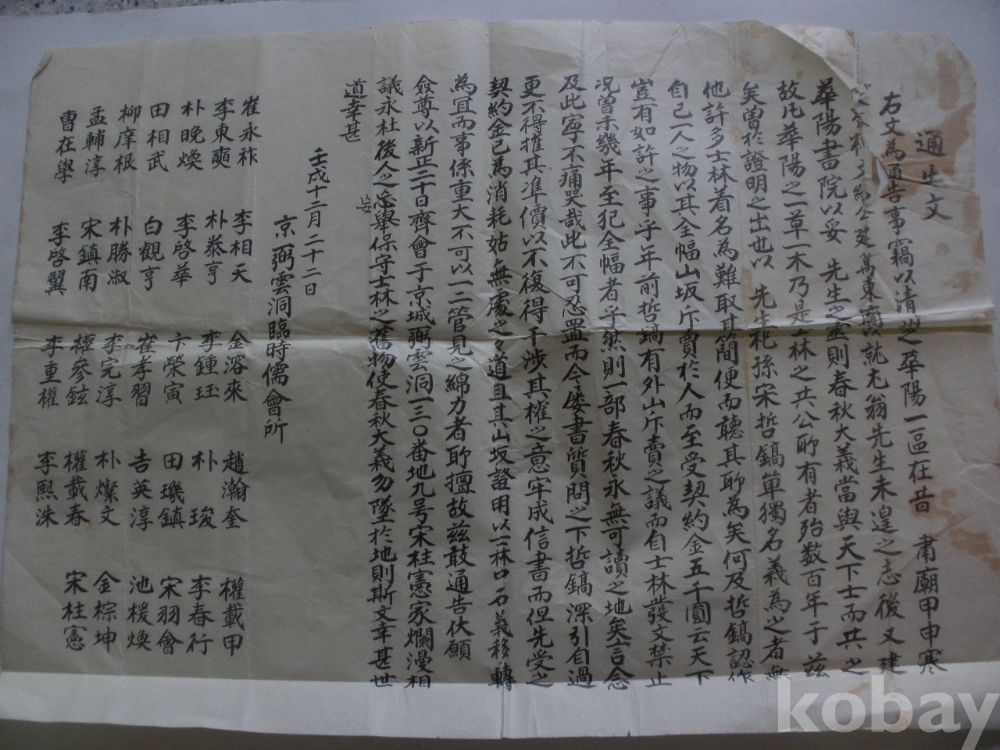 通告文
右文為通告事竊以清州華陽一區在昔 肅廟甲申寒
建萬東廟就尤翁先生未遑之志後又建
華陽書院以妥 先生之靈則春秋大義當與天下士而共之
故凡華陽之一草一木乃是士林之共公所有者殆数百年于茲
矣曽於證明之出也以 先生祀孫宋哲鎬單獨名義為之者無
他許多士林着名為難取其簡便而聽其所為矣何及哲鎬認作
自己一人之物以其全幅山坂斥賣於人而至受契約金五千圓云天下
豈有如許之事乎年前哲鎬有外山斥賣之議而自士林發文禁止
况曽未幾年至犯全幅者乎然則一部春秋永無可讀之地矣言念
及此寧不痛哭哉此不可忍置而今屡書質問之下哲鎬深引自過
更不得推其凖價以不復得干涉其權之意牢成信書而但先受之
契約金已為消耗姑無處之之道且其山坂證明以士林口名義移轉
為宜而事係重大不可以一二管見之綿力者所擅故茲敢通告伏願
僉尊以新正二十日齊會于京城弼雲洞一三〇番地九号宋柱憲家爛漫相
議永杜後人之忘舉保守士林之舊物使春秋大義勿墜於地則斯文幸甚世
妄
道幸甚
壬戌十二月二十二日
京弼雲洞臨時儒會所
崔永祚 李相天 金溶來 趙瀚奎 權載甲
李東奭 朴泰亨 李鍾珏 朴 珱 李春行
朴晚煥 李啓華 卞榮寅 田璣鎮 宋羽會
田相武 白觀亨 崔孝習 吉英淳 池楥煥
柳庠根 朴勝淑 李完淳 朴燦文 金棕坤
孟輔淳 宋鎮南 權參鉉 權載春 宋柱憲
曺在學 李啓翼 李重權 李熙洙
kobay